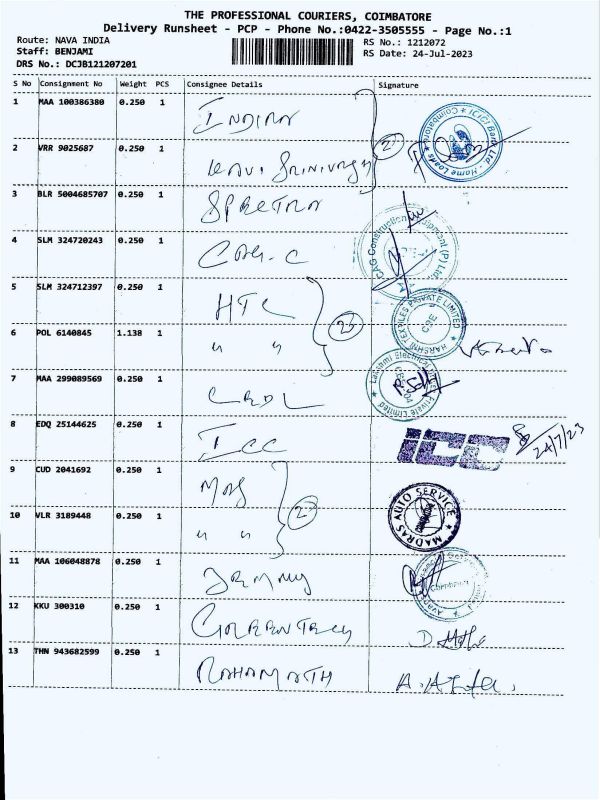 THE PROFESSIONAL COURIERS, COIMBATORE
Delivery Runsheet - PCP - Phone No.:0422-3505555 - Page No.:1
Route: NAVA INDIA
Staff: BENJAMI
DRS No.: DCJB121207201
RS No.: 1212072
RS Date: 24-Jul-2023
S No Consignment No Weight PCS Consignee Details Signature
1 MAA 100386380 0.250 1 INDIRA
2 VRR 9025687 0.250 1 RAVI SRINIVASN
3 BLR 5004685707 0.250 1 SPECTRA
4 SLM 324720243 0.250 1
5 SLM 324712397 0.250 1 HTL
6 POL 6140845 1.138 1 " "
7 MAA 299089569 0.250 1
8 EDQ 25144625 0.250 1 ICC
ICC 24/7/23
9 CUD 2041692 0.250 1 MAS
10 VLR 3189448 0.250 1 " "
MADRAS AUTO SERVICE
11 MAA 106048878 0.250 1 JEMMY
12 KKU 300310 0.250 1 GREENTECH
13 THN 943682599 0.250 1 RAHAMATH
ICICI Bank Ltd - Home Loans Coimbatore
CAG Construction Equipment (P) Ltd.
HARSHNI TEXTILES PRIVATE LIMITED
CBE
Private Limited